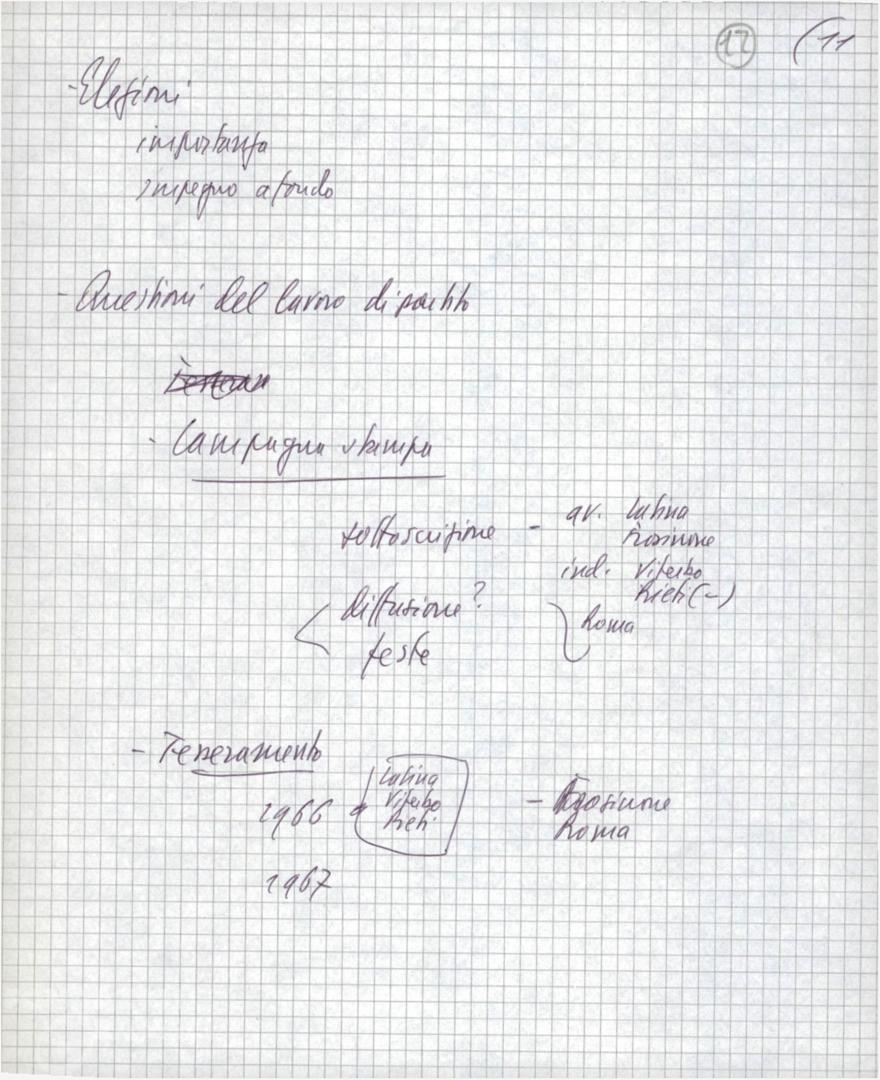 12 (11
- Elezioni
importanza
impegno a fondo
- Questioni del lavoro di partito
- Campagna stampa
sottoscrizione - av. Latina
Frosinone
ind. Viterbo
Rieti (-)
diffusione? Roma
feste
- Tesseramento
1966 Latina
Viterbo
Rieti
- Frosinone
Roma
1967